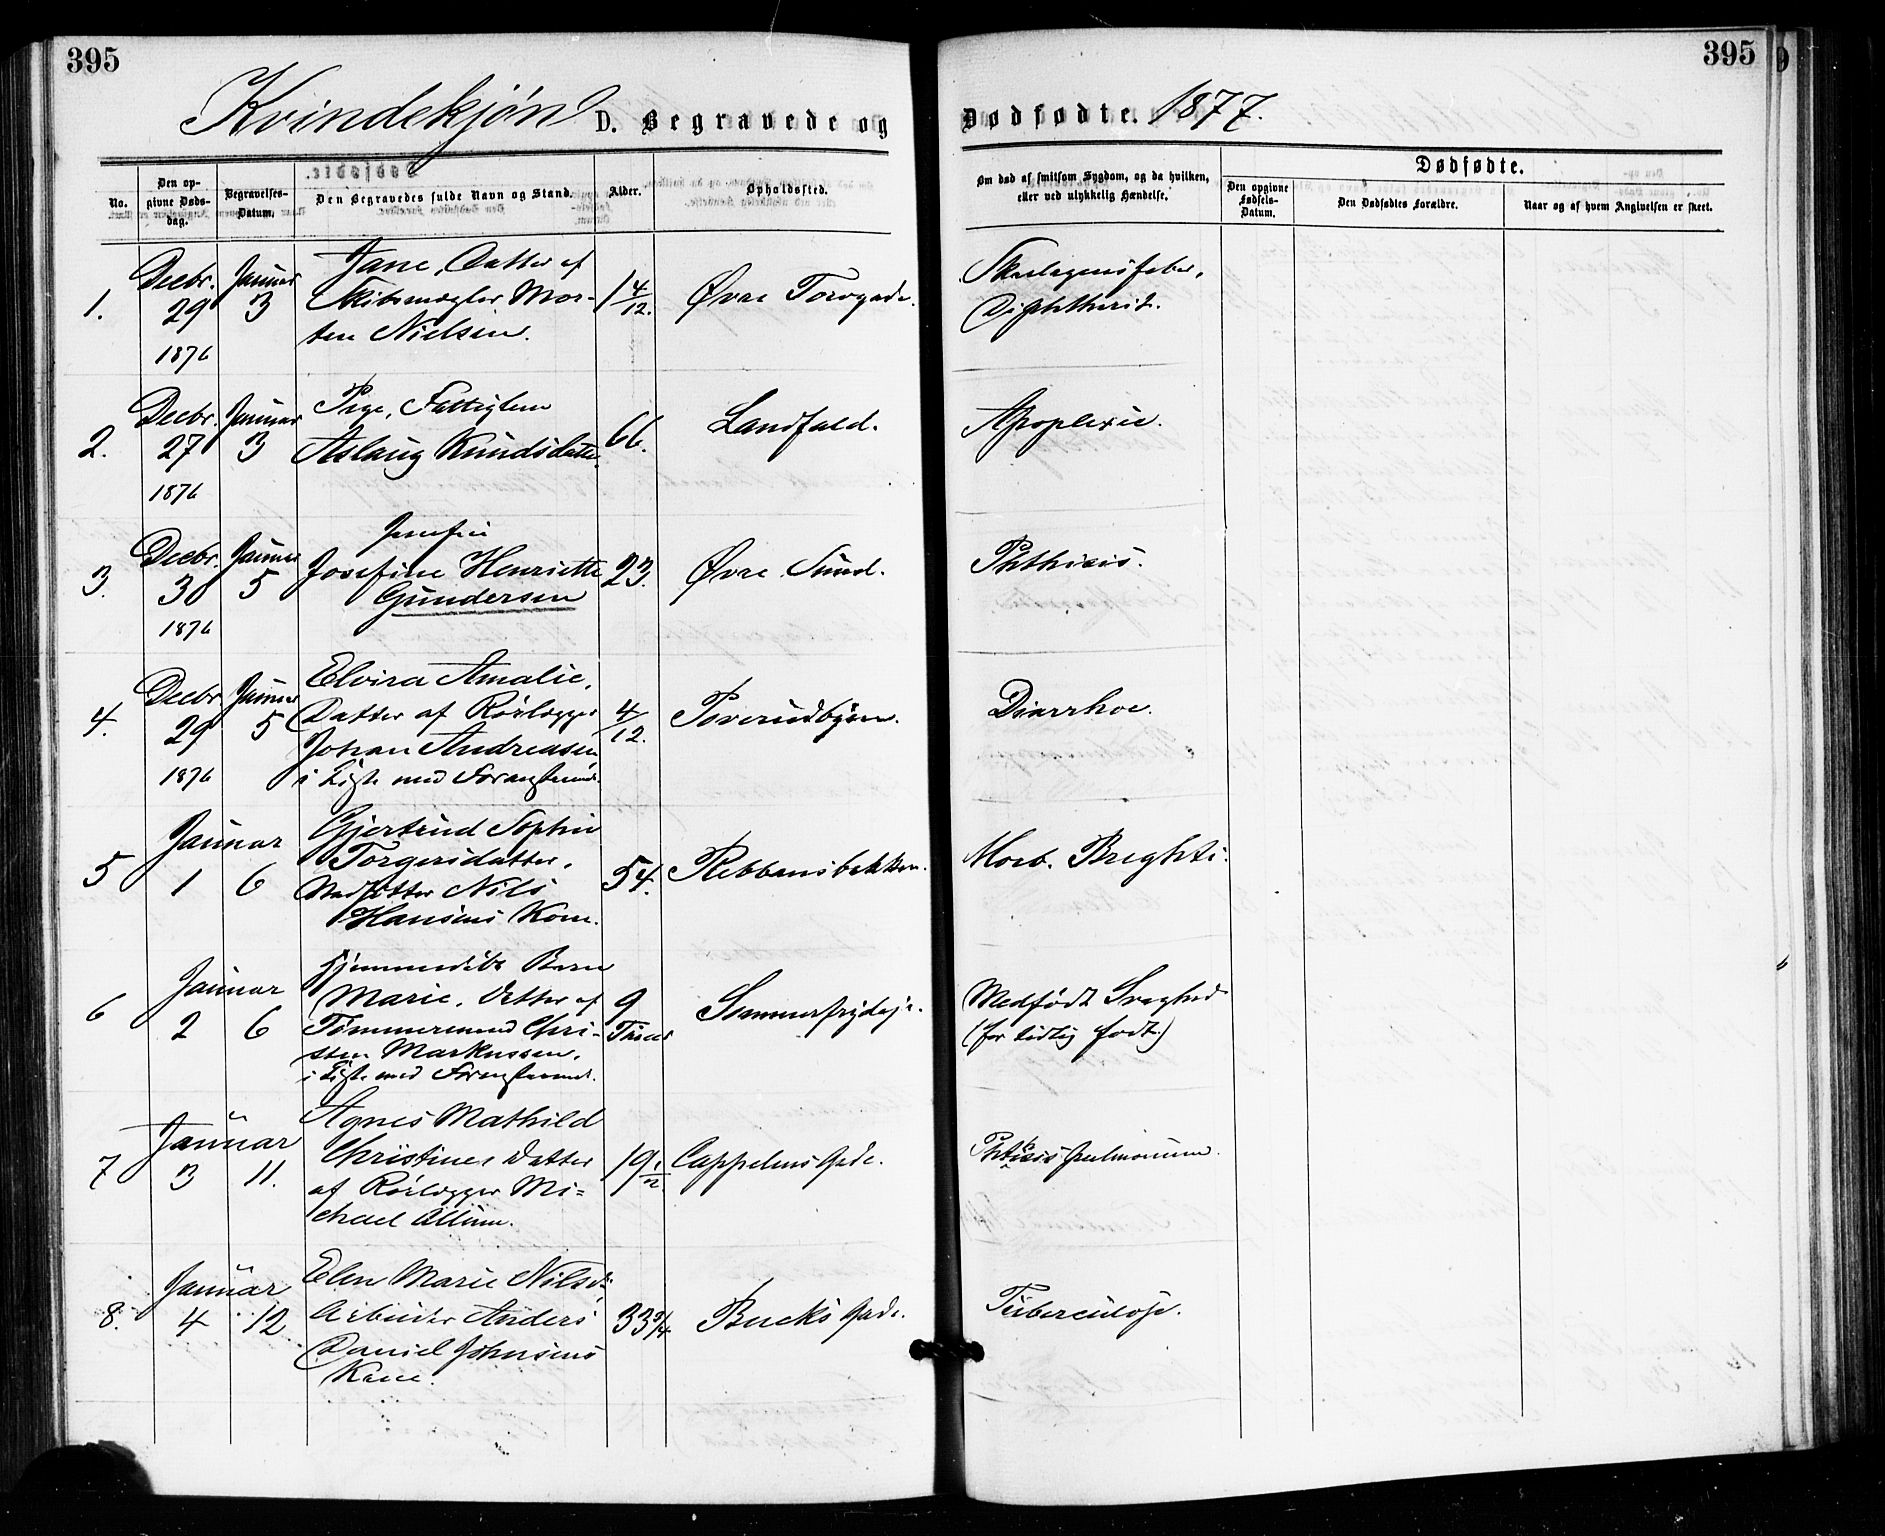 395
395
Kvindekjøn D. Begravede og Dødfødte. 1877.
No.
Den opgivne Dødsdag.
Begravelses-Datum.
Den Begravedes fulde Navn og Stand.
Alder.
Opholdssted.
Om død af smitsom Sygdom, og da hvilken,
eller ved ulykkelig Hændelse.
Dødfødte.
Den opgivne Fødsels-Datum.
Den Dødfødtes Forældre.
Naar og af hvem Angivelsen er skeet.
1.
Decbr. 29 1876
Januar 3
Jane, Datter af
Skibsmægler Mor-
ten Nielsen.
1 4/12.
Øvre Torvgade.
Skarlagensfeber,
Diphtherit.
2.
Decbr. 27 1876
Januar 3
Pige, Fattiglem
Aslaug Knudsdatter
66.
Landfald.
Apoplexie.
3.
Decbr. 30 1876
Januar 5
Josefine Henriette
Gundersen
23.
Øvre Sund.
Phthisis.
4.
Decbr. 29 1876
Januar 5
Elvira Amalie,
Datter af Rørlægger
Johan Andreasen
i Ligte med
4/12.
Poverudbyen.
Diarrhoe.
5
Januar
1 6
Gjertrud Sophie
Torgersdatter,
Nils
Hansens Kone.
54.
Ribbansbakken.
Morb. Brighti.
6
Januar
2 6
Hjemmedøbt Barn
Marie, Datter af
Tømmermand Chri-
sten Markussen,
i Ligte med
9
Timer
Sommerfrydeje.
Medfødt Svaghed
(for tidlig født.)
7
Januar
3 11.
Agnes Mathild
Christine, Datter
af Rørlægger Mi-
chael Allum.
19 1/12.
Cappelens Gade.
Phthisis pulmonum.
8.
Januar
4 12
Elen Marie Nilsd.
Arbeider Anders
Daniel Johnsens
Kone.
33 3/4
Bucks Gade.
Tuberculose.